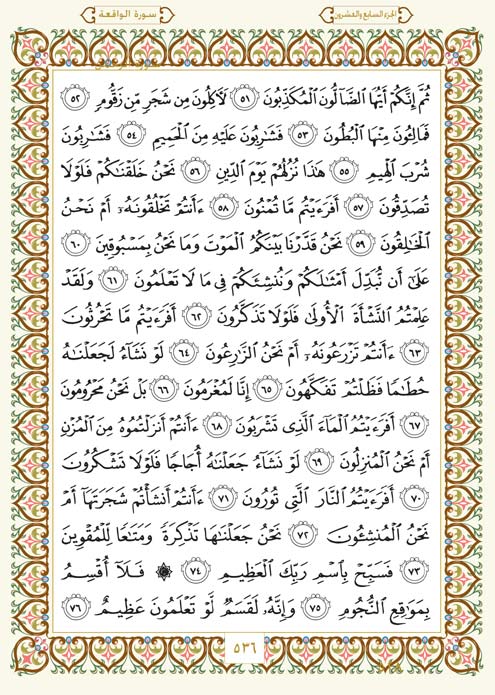 سورة الواقعة
الجزء السابع والعشرون
ثُمَّ إِنَّكُمْ أَيُّهَا ٱلضَّآلُّونَ ٱلْمُكَذِّبُونَ ٥١ لَءَاكِلُونَ مِن شَجَرٍ مِّن زَقُّومٍ ٥٢
فَمَالِـُٔونَ مِنْهَا ٱلْبُطُونَ ٥٣ فَشَٰرِبُونَ عَلَيْهِ مِنَ ٱلْحَمِيمِ ٥٤ فَشَٰرِبُونَ
شُرْبَ ٱلْهِيمِ ٥٥ هَٰذَا نُزُلُهُمْ يَوْمَ ٱلدِّينِ ٥٦ نَحْنُ خَلَقْنَٰكُمْ فَلَوْلَا
تُصَدِّقُونَ ٥٧ أَفَرَءَيْتُم مَّا تُمْنُونَ ٥٨ ءَأَنتُمْ تَخْلُقُونَهُۥٓ أَمْ نَحْنُ
ٱلْخَٰلِقُونَ ٥٩ نَحْنُ قَدَّرْنَا بَيْنَكُمُ ٱلْمَوْتَ وَمَا نَحْنُ بِمَسْبُوقِينَ ٦٠
عَلَىٰٓ أَن نُّبَدِّلَ أَمْثَٰلَكُمْ وَنُنشِئَكُمْ فِى مَا لَا تَعْلَمُونَ ٦١ وَلَقَدْ
عَلِمْتُمُ ٱلنَّشْأَةَ ٱلْأُولَىٰ فَلَوْلَا تَذَكَّرُونَ ٦٢ أَفَرَءَيْتُم مَّا تَحْرُثُونَ
٦٣ ءَأَنتُمْ تَزْرَعُونَهُۥٓ أَمْ نَحْنُ ٱلزَّٰرِعُونَ ٦٤ لَوْ نَشَآءُ لَجَعَلْنَٰهُ
حُطَٰمًا فَظَلْتُمْ تَفَكَّهُونَ ٦٥ إِنَّا لَمُغْرَمُونَ ٦٦ بَلْ نَحْنُ مَحْرُومُونَ
٦٧ أَفَرَءَيْتُمُ ٱلْمَآءَ ٱلَّذِى تَشْرَبُونَ ٦٨ ءَأَنتُمْ أَنزَلْتُمُوهُ مِنَ ٱلْمُزْنِ
أَمْ نَحْنُ ٱلْمُنزِلُونَ ٦٩ لَوْ نَشَآءُ جَعَلْنَٰهُ أُجَاجًا فَلَوْلَا تَشْكُرُونَ
٧٠ أَفَرَءَيْتُمُ ٱلنَّارَ ٱلَّتِى تُورُونَ ٧١ ءَأَنتُمْ أَنشَأْتُمْ شَجَرَتَهَآ أَمْ
نَحْنُ ٱلْمُنشِـُٔونَ ٧٢ نَحْنُ جَعَلْنَٰهَا تَذْكِرَةً وَمَتَٰعًا لِّلْمُقْوِينَ
٧٣ فَسَبِّحْ بِٱسْمِ رَبِّكَ ٱلْعَظِيمِ ٧٤ ۞ فَلَآ أُقْسِمُ
بِمَوَٰقِعِ ٱلنُّجُومِ ٧٥ وَإِنَّهُۥ لَقَسَمٌ لَّوْ تَعْلَمُونَ عَظِيمٌ ٧٦
٥٣٦